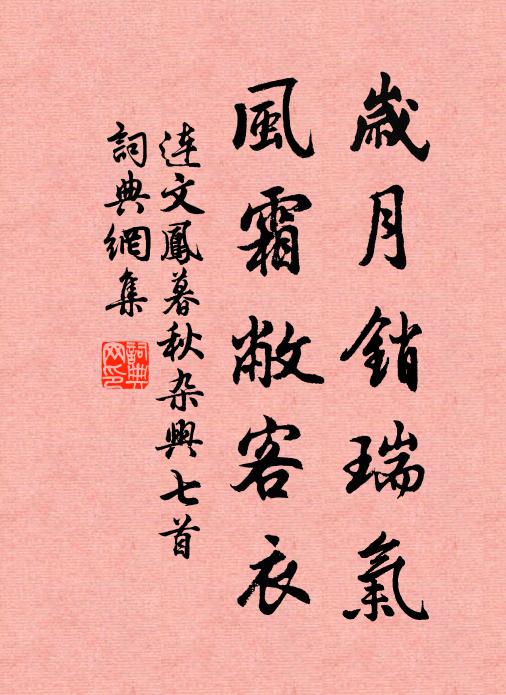 歲月銷瑞氣
風霜敝客衣
連文鳳暮秋杂興七首
詞典網集
詞典網印